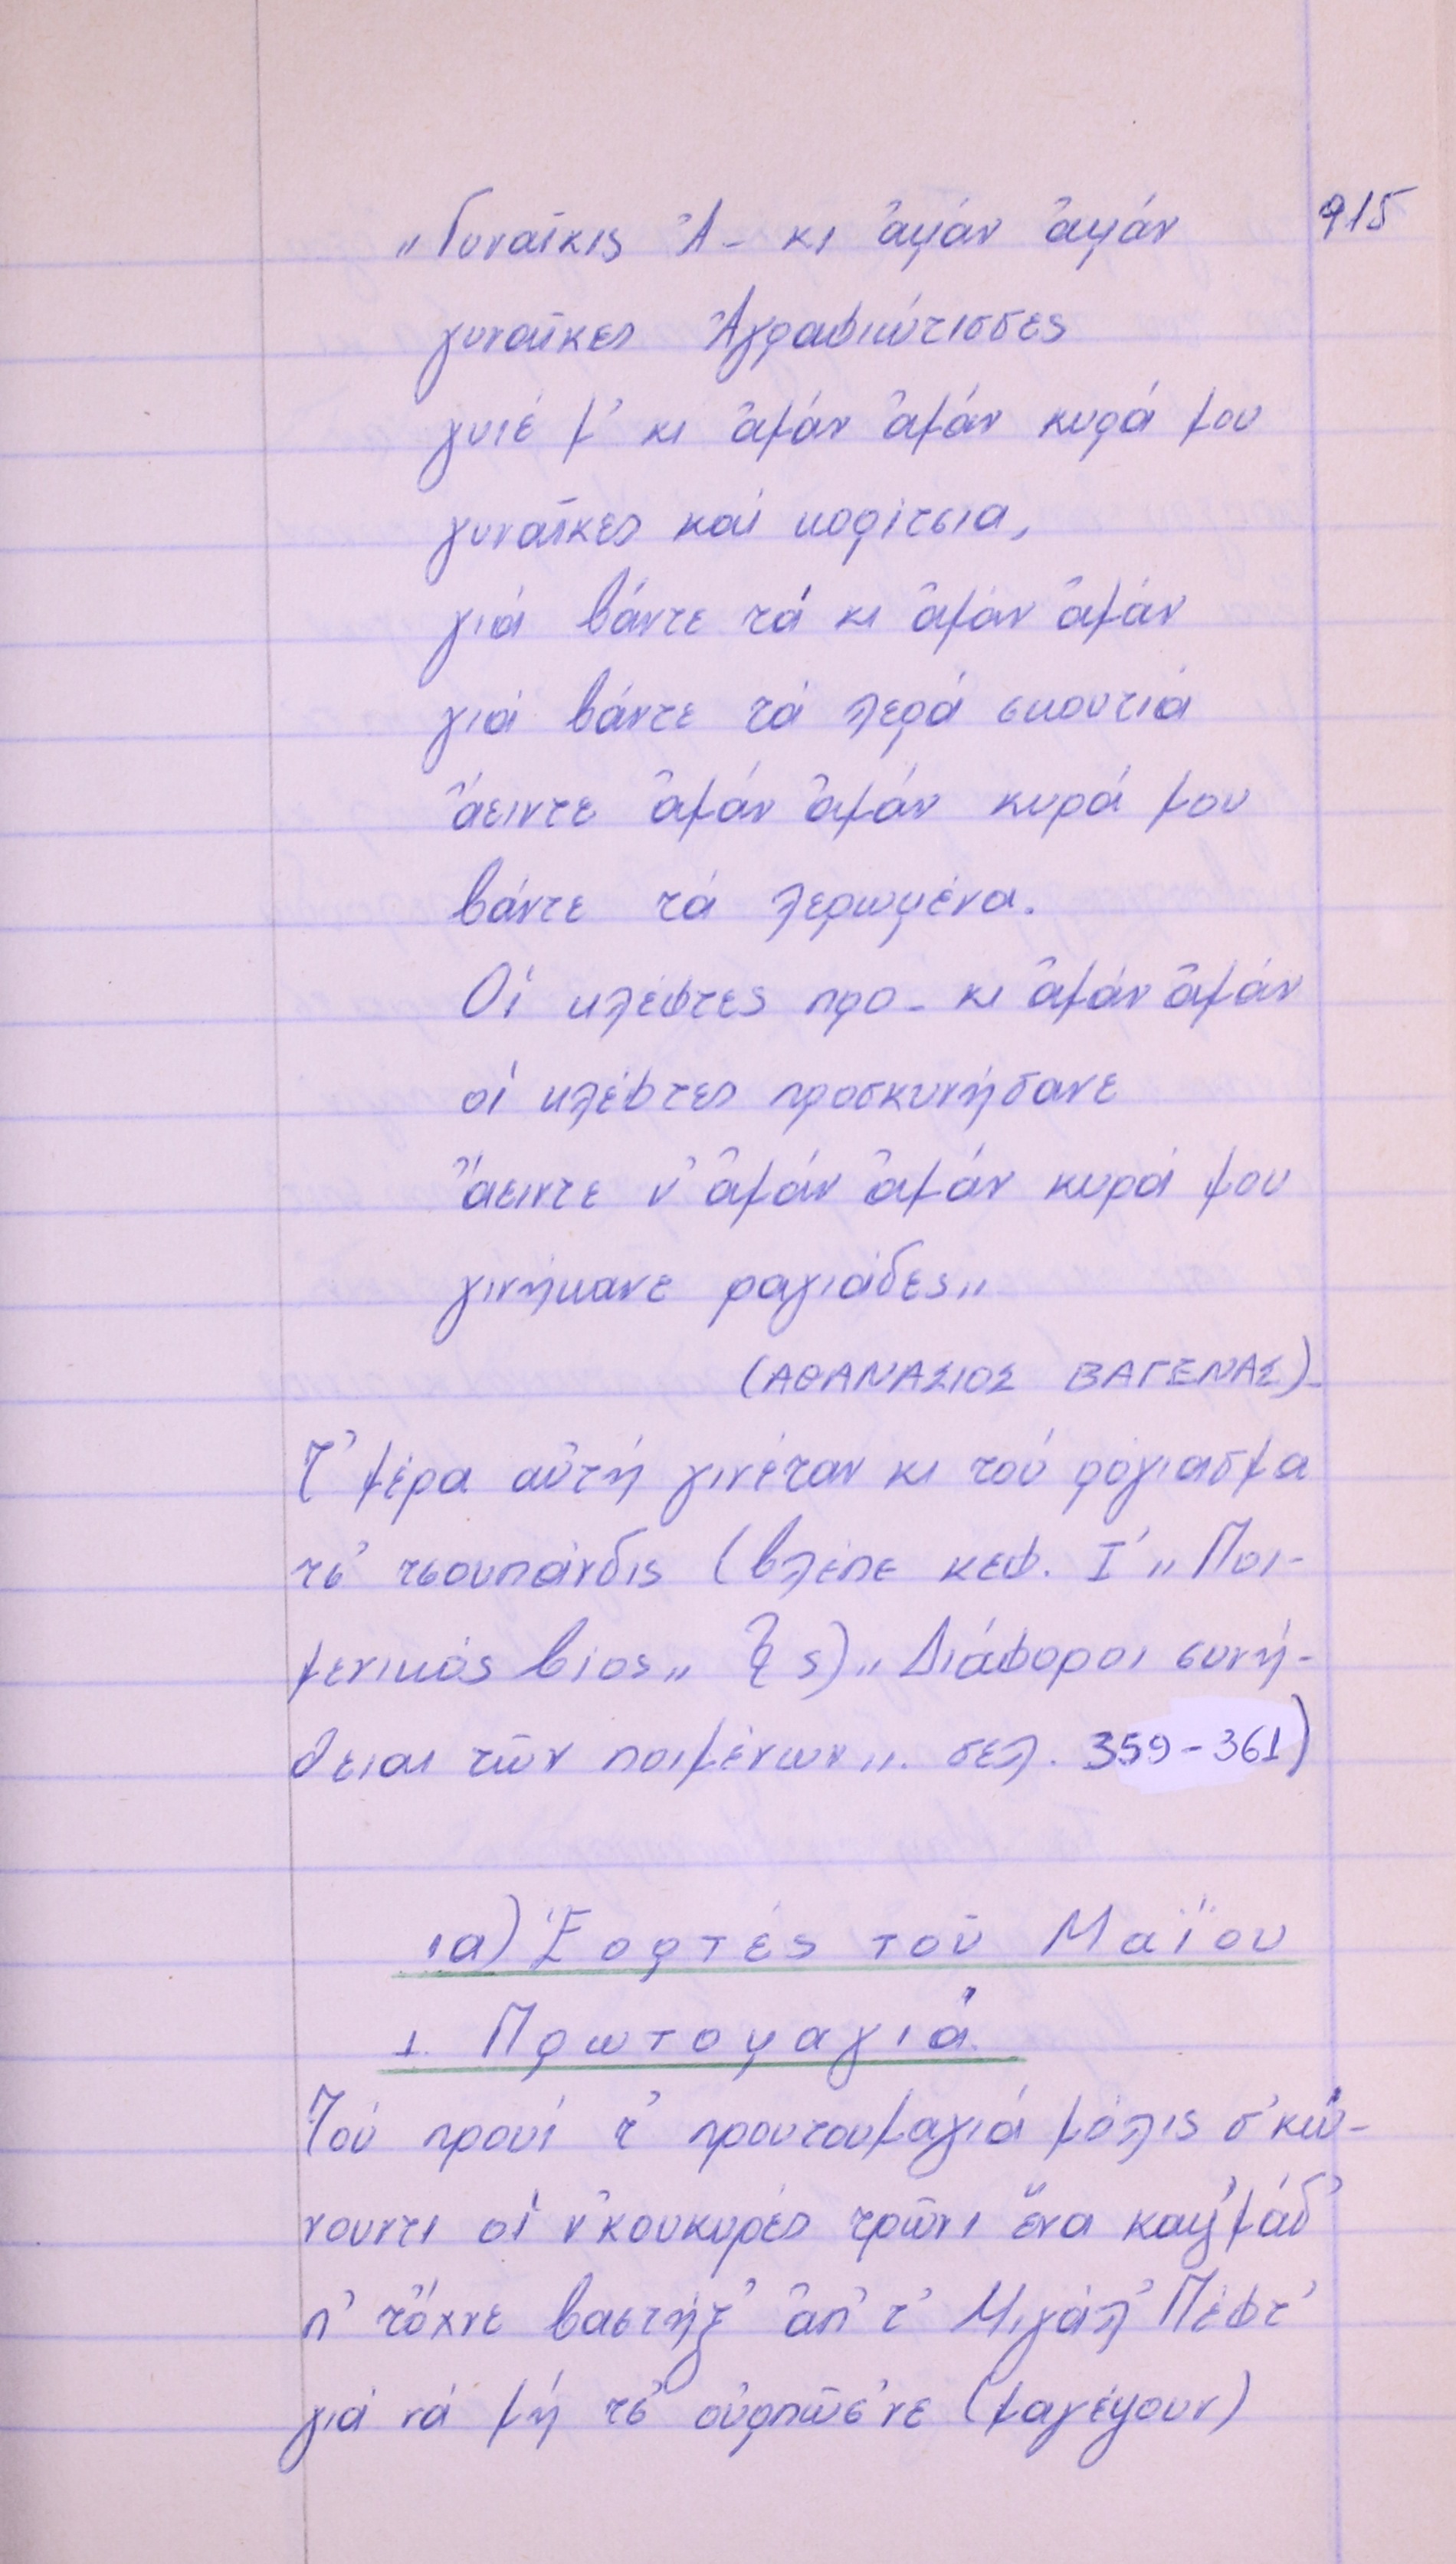 915
„Γυναῖκις Ἀ- κι ἀμάν ἀμάν
γυναῖκες Ἀγραφιώτισσες
γυιέ μ' κι ἀμάν ἀμάν κυρά μου
γυναῖκες καί κορίτσια,
γιά βάντε τά κι ἀμάν ἀμάν
γιά βάντε τά λερά σκουτιά
ἄειντε ἀμάν ἀμάν κυρά μου
βάντε τά λερωμένα.
Οἱ κλέφτες προ- κι ἀμάν ἀμάν
οἱ κλέφτες προσκυνήσανε
ἄειντε ν' ἀμάν ἀμάν κυρά μου
γινήκανε ραγιάδες„
(ΑΘΑΝΑΣΙΟΣ ΒΑΓΕΝΑΣ)-
Τ' μέρα αὐτή γινέταν κι τού ρόγιασμα
τσ' τσουπάνδις (βλέπε κεφ. Ι' „Ποι-
μενικός βίος„ ς) „Διάφοροι συνή-
θειαι τῶν ποιμένων„. σελ. 359-361)
ια) Ἑορτές τοῦ Μαΐου
1. Πρωτομαγιά
Τού προυί τ' προυτουμαγιά μόλις σ'κώ-
νουντι οἱ ν'κουκυρές τρῶνι ἕνα καψ'μάδ'
π' τὄχνε βαστήξ' ἀπ' τ' Μιγάλ' Πέφτ'
γιά νά μή τσ' οὑρπῶσ'νε (μαγέψουν)